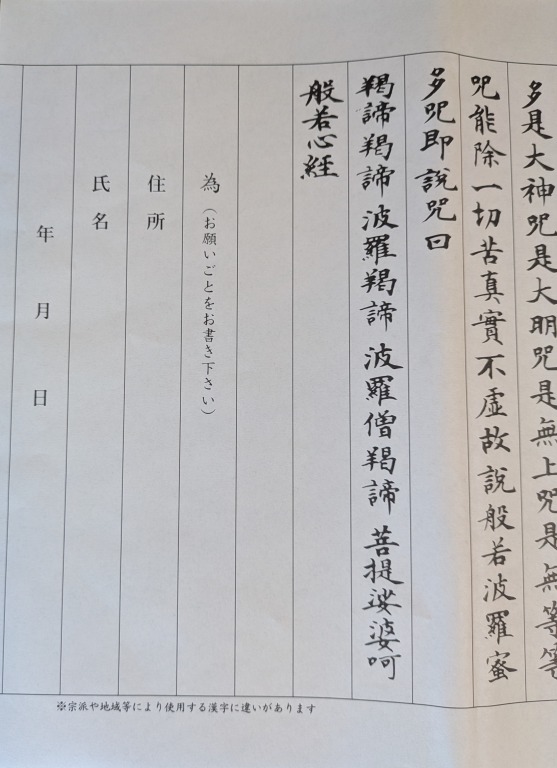 多是大神咒是大明咒是無上咒是無等等
咒能除一切苦真實不虛故説般若波羅蜜
多咒即説咒曰
羯諦羯諦 波羅羯諦 波羅僧羯諦 菩提娑婆呵
般若心経
為（お願いごとをお書き下さい）
住所
氏名
年 月 日
※宗派や地域等により使用する漢字に違いがあります